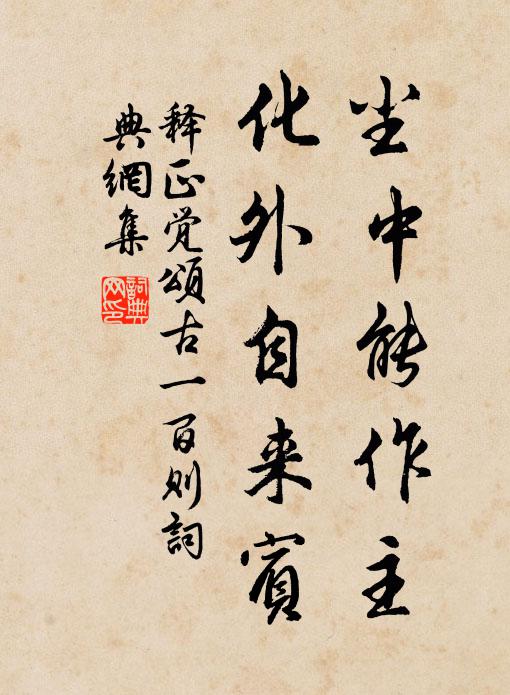 尘中能作主
化外自来宾
释正觉颂古一百则詞
典網集
詞典
网印